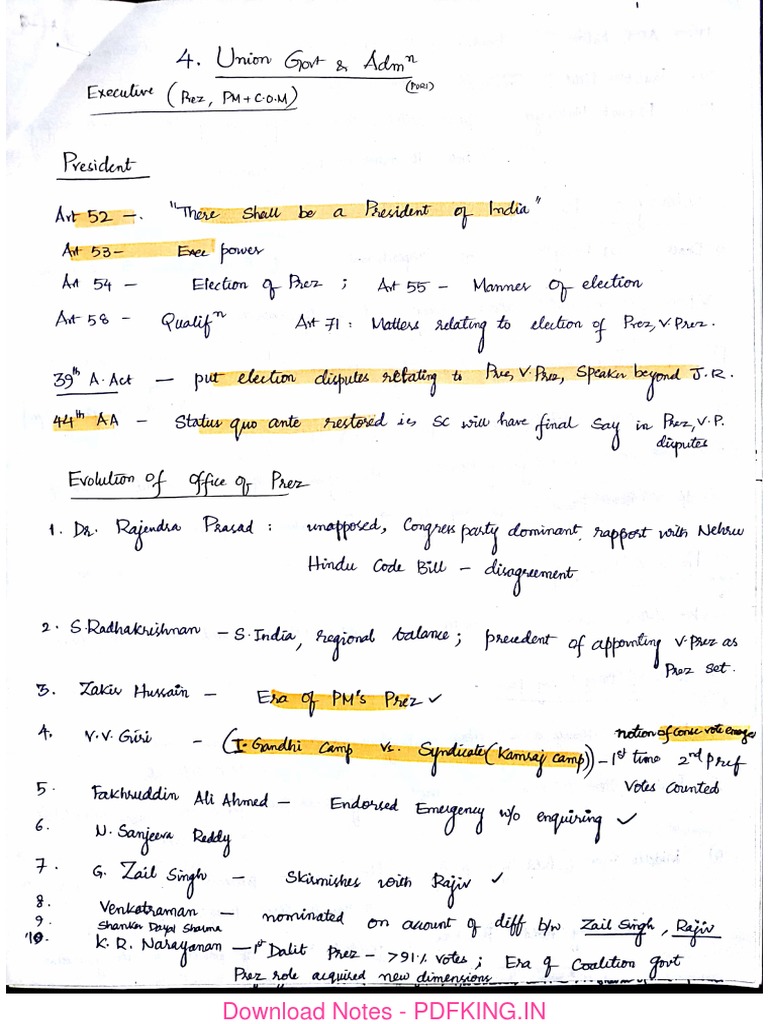 4. Union Govt & Admn
(PURI)
Executive (Prez, PM + C.O.M)
President
Art 52 -. "There shall be a President of India"
Art 53 - Exec power
Art 54 - Election of Prez ; Art 55 - Manner of election
Art 58 - Qualifn Art 71 : Matters relating to election of Prez, V. Prez.
39th A. Act - put election disputes relating to Prez, V. Prez, Speaker beyond J.R.
44th AA - Status quo ante restored ie SC will have final say in Prez, V.P.
disputes
Evolution of office of Prez
1. Dr. Rajendra Prasad : unapposed, Congress party dominant, rapport with Nehru
Hindu Code Bill - disagreement
2. S. Radhakrishnan - S. India, regional balance ; precedent of appointing V. Prez as
Prez set.
3. Zakir Hussain - Era of PM's Prez ✓
4. V.V. Giri - (I. Gandhi Camp vs. Syndicate (Kamraj camp)) - 1st time 2nd pref
notion of consc vote emerge
Votes counted
5. Fakhruddin Ali Ahmed - Endorsed Emergency w/o enquiring ✓
6. N. Sanjeeva Reddy
7. G. Zail Singh - Skirmishes with Rajiv ✓
8. Venkatraman - nominated on account of diff b/w Zail Singh, Rajiv
9. Shanker Dayal Sharma
10. K. R. Narayanan - 1st Dalit Prez - >91% votes ; Era of Coalition govt
Prez role acquired new dimensions
Download Notes - PDFKING.IN